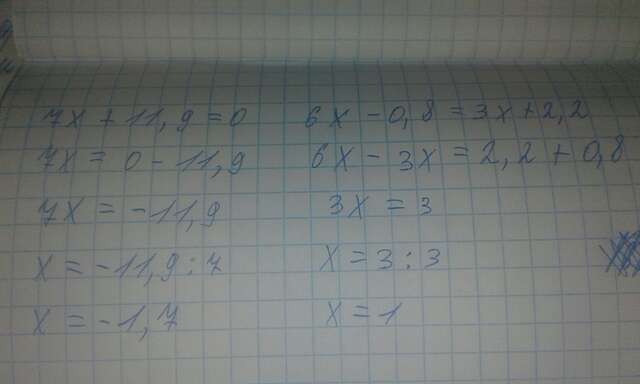 7x + 11,9 = 0
7x = 0 - 11,9
7x = -11,9
x = -11,9 : 7
x = -1,7
6x - 0,8 = 3x + 2,2
6x - 3x = 2,2 + 0,8
3x = 3
x = 3 : 3
x = 1